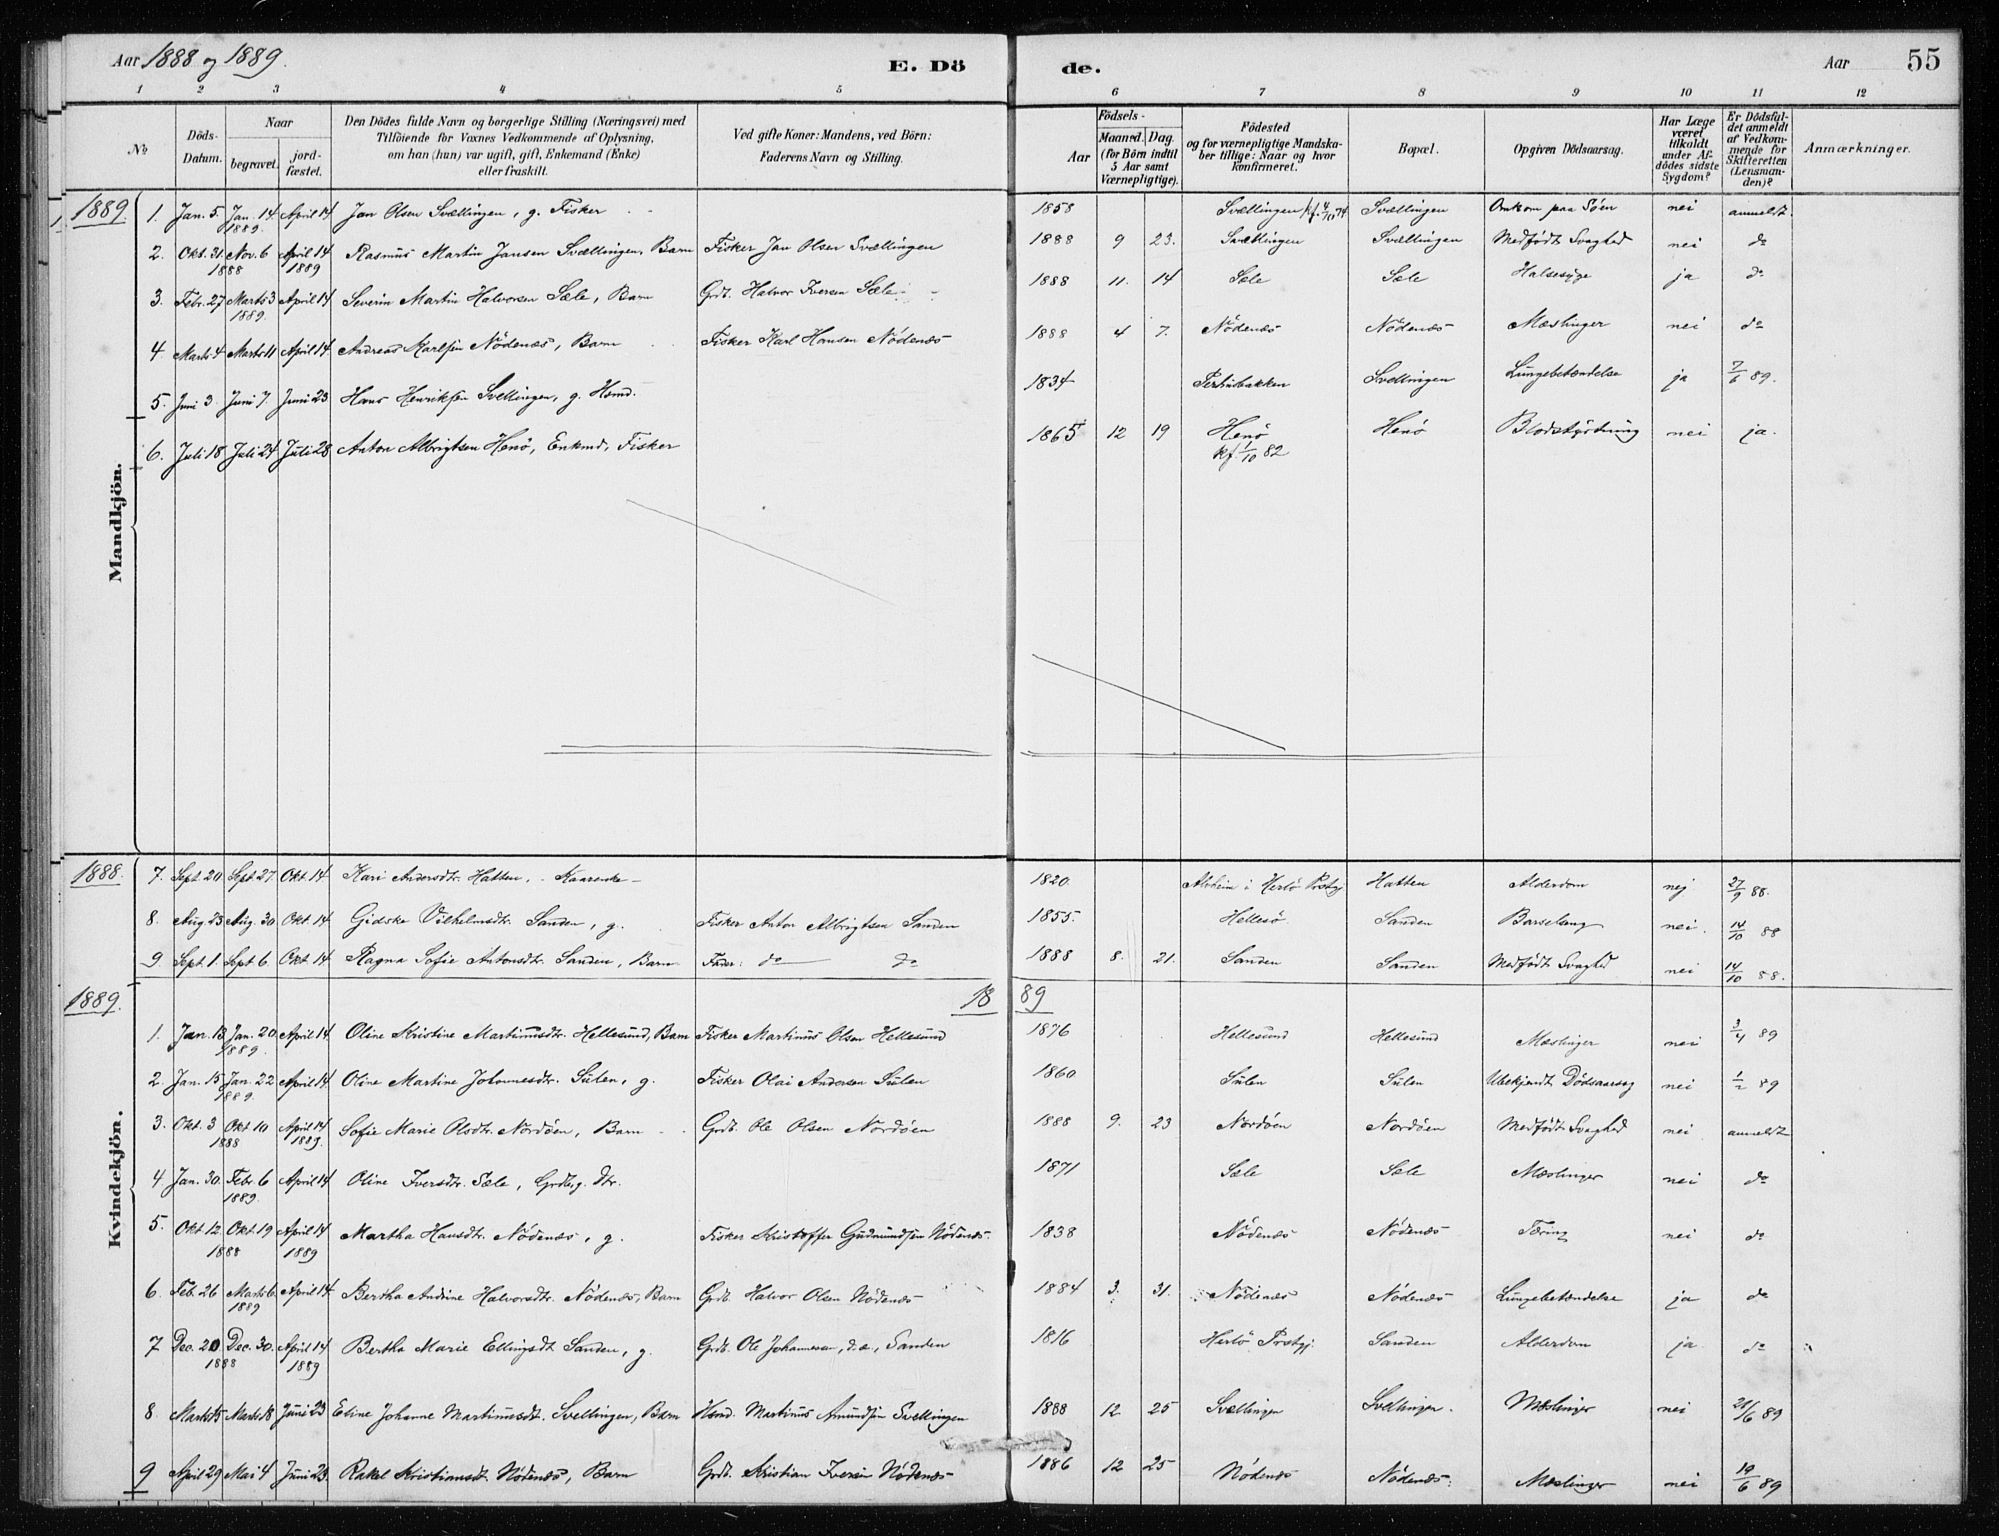 Aar 1888 og 1889.
E. Dö de.
Aar 55
1 2 3 4 5 6 7 8 9 10 11 12
No
Döds-Datum.
Naar
begravet. jord-fæstet.
Den Dödes fulde Navn og borgerlige Stilling (Næringsvei) med
Tilföiende for Voxnes Vedkommende af Oplysning,
om han (hun) var ugift, gift, Enkemand (Enke)
eller fraskilt.
Ved gifte Koner: Mandens, ved Börn:
Faderens Navn og Stilling.
Födsels-
Aar Maaned. Dag.
(for Börn indtil
5 Aar samt
Værnepligtige).
Födested
og for værnepligtige Mandska-
ber tillige: Naar og hvor
konfirmeret.
Bopæl.
Opgiven Dödsaarsag.
Har Læge
været
tilkaldt
under Af-
dödes sidste
Sygdom?
Er Dödsfal-
det anmeldt
af Vedkom-
mende for
Skifteretten
(Lensman-
den)?
Anmærkninger.
Mandkjön.
1889. 1. Jan. 5. Jan. 14. 1889. April 14 Jan Olsen Svællingen, g. Fisker 1858 Svællingen kf. 4/10 74 Svællingen Omkom paa Søen nei anmeldt.
2. Okt. 31. Nov. 6 1888 April 14 1889 Rasmus Martin Jansen Svællingen, Barn Fisker Jan Olsen Svællingen 1888 9 23. Svællingen Svællingen Medfødt Svaghed nei do
3. Febr. 27 Marts 3 1889. April 14 Severin Martin Halvorsen Sæle, Barn Grdb. Halvor Iversen Sæle 1888 11. 14 Sæle Sæle Halsesyge ja do
4. Marts 4 Marts 11 April 14 Andreas Karlsen Nödenæs, Barn Fisker Karl Hansen Nödenæs 1888 4 7. Nödenæs Nödenæs Mæslinger nei do
5. Juni 3. Juni 7. Juni 23 Hans Henriksen Svellingen, g. Hsmd. 1834 Svellingen Lungebetændelse ja 7/6 89.
6. Juli 18 Juli 24 Juli 28 Anton Albrigtsen Henö, Enkmd, Fisker 1865 12 19 Henö kf. 1/10 82 Henö Blodstyrtning nei ja.
Kvindekjön.
1888. 7. Sept. 20 Sept. 27 Okt. 14 Kari Andersdtr. Hatten, Kaarenke 1820. i Herlö Prstgj Hatten Alderdom nej 27/9 88.
8. Aug. 23 Aug. 30 Okt. 14 Gidske Vilhelmsdtr. Sanden, g. Fisker Anton Albrigtsen Sanden 1855. Hellesö Sanden Barselseng nei. 14/10 88
9. Sept. 1. Sept. 6. Okt. 14 Ragna Sofie Antonsdtr. Sanden, Barn Fader: do do 1888 8. 21. Sanden Sanden Medfødt Svaghed nei 14/10 88.
1889. 18 89
1. Jan. 13 Jan. 20. 1889. April 14 Oline Kristine Martinusdtr. Hellesund, Barn Fisker Martinus Olsen Hellesund 1876 Hellesund Hellesund Mæslinger nei 3/4 89
2. Jan. 15 Jan. 22 1889. April 14 Oline Martine Johannesdtr. Sulen, g. Fisker Olai Andersen Sulen 1860 Sulen Sulen Ubekjendt Dödsaarsag nei 1/2 89
3. Okt. 3 Okt. 10 1888 April 14 1889. Sofie Marie Olsdtr. Nordöen, Barn Grdb. Ole Olsen Nordöen 1888 9. 23 Nordöen Nordöen Medfødt Svaghed nei anmeldt
4 Jan. 30. Febr. 6 1889. April 14 Oline Iversdtr. Sæle, Grdbg. Dtr. 1871 Sæle Sæle Mæslinger nei do
5. Okt. 12 Okt. 19 1888 April 14 1889 Martha Hansdtr. Nödenæs, g. Fisker Kristoffer Gudmundsen Nödenæs. 1838 Nödenæs Nödenæs Tæring nei do
6 Feb. 26 Marts 6. 1889 April 14 Bertha Andrine Halvorsdtr. Nödenæs, Barn Grdb. Halvor Olsen Nödenæs 1884 3. 31. Nödenæs Nödenæs Lungebetændelse ja do
7 Dec. 20 Dec. 30. 1888 April 14 1889 Bertha Marie Ellingsdt. Sanden, g. Grdb. Ole Johannesen, d. æ., Sanden 1816 Herlö Prstgj. Sanden Alderdom ja do
8 Marts 15 Marts 18 Juni 23 Eline Johanne Martinusdtr. Svellingen, Barn Hsmd. Martinus Amundsen Svellingen 1888 12 25 Svællingen Svellingen. Mæslinger nei 21/6 89
9 April 29 Mai 4 Juni 23 Rakel Kristiansdt. Nödenæs, Barn Grdb. Kristian Iversen Nödenæs 1886 12 25 Nödenæs Nödenæs. Mæslinger nei 19/6 89